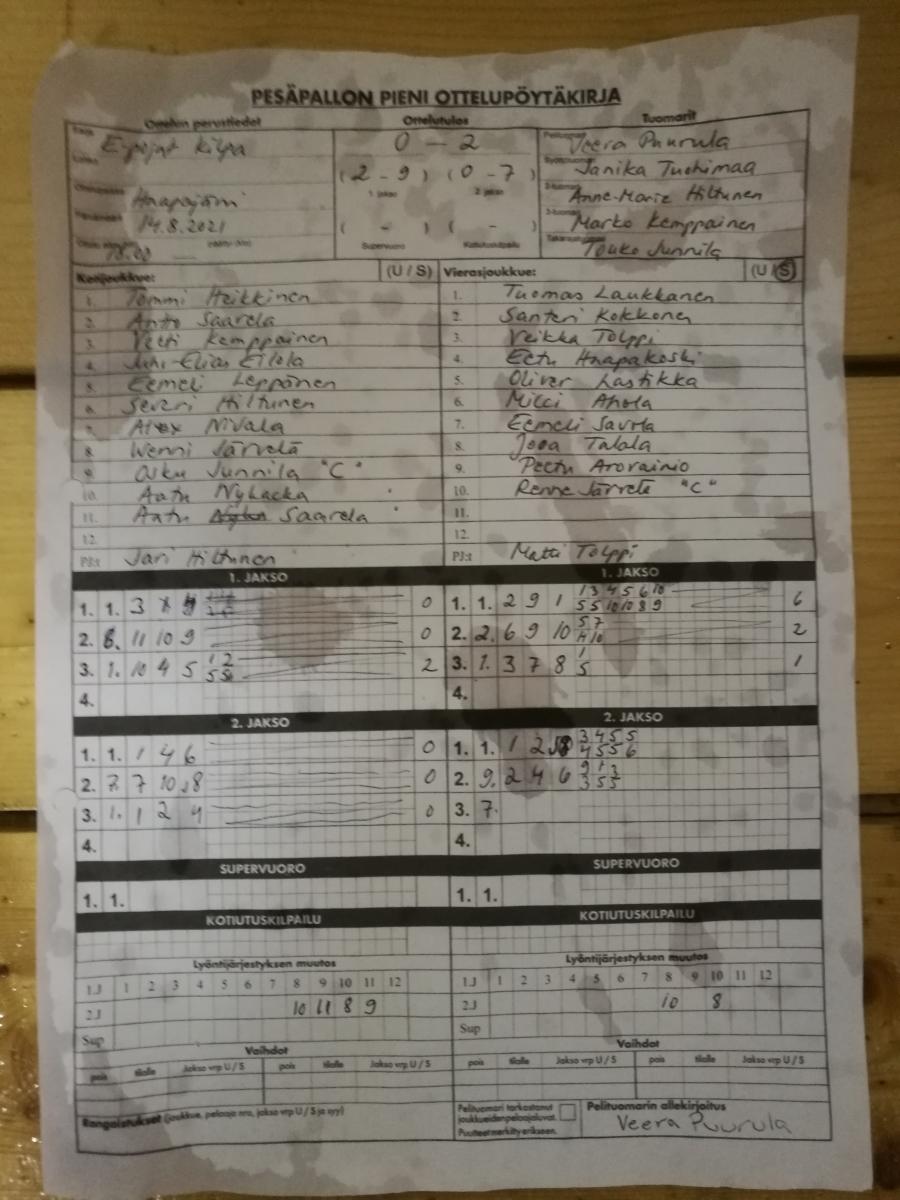 PESÄPALLON PIENI OTTELUPÖYTÄKIRJA
Ottelun perustiedot Ottelutulos Tuomarit
E-pojat Kilpa 0 - 2 Veera Puurula
(2 - 9) (0 - 7) Janika Tuohimaa
1. jakso 2. jakso
Haapajärvi Anne-Marie Hiltunen
14.8.2021 ( - ) ( - ) Marko Kemppainen
18.00 Supervuoro Kotiutuskilpailu Touko Junnila
Kotijoukkue: (U / S) Vierasjoukkue: (U / S)
1. Tommi Heikkinen 1. Tuomas Laukkanen
2. Antto Saarela 2. Santeri Kokkonen
3. Vetti Kemppainen 3. Veikka Tolppi
4. Juhi-Elias Eilola 4. Eetu Haapakoski
5. Eemeli Leppänen 5. Oliver Lastikka
6. Severi Hiltunen 6. Miici Ahola
7. Alex Nivala 7. Eemeli Saurla
8. Wenni Järvelä 8. Jooa Talala
9. Asku Junnila "C" 9. Peetu Arorainio
10. Aatu Nykacka 10. Renne Järvelä "C"
11. Aatu Saarela 11.
12. 12.
PJ:t Jari Hiltunen PJ:t Matti Tolppi
1. JAKSO 1. JAKSO
1. 1. 3 0 1. 1. 2 9 1 1 3 4 5 6 10 6
5 5 10 10 8 9
2. 8. 11 10 9 0 2. 2. 6 9 10 5 7 2
4 10
3. 1. 10 4 5 1 2 2 3. 1. 3 7 8 1 1
5 5 5
4. 4.
2. JAKSO 2. JAKSO
1. 1. 1 4 6 0 1. 1. 1 2 3 4 5 5
4 5 5 6
2. 7. 7 10 8 0 2. 9. 2 4 6 9 1 3
3 5 5
3. 1. 1 2 4 0 3. 7.
4. 4.
SUPERVUORO SUPERVUORO
1. 1. 1. 1.
KOTIUTUSKILPAILU KOTIUTUSKILPAILU
Lyöntijärjestyksen muutos Lyöntijärjestyksen muutos
1.J 1 2 3 4 5 6 7 8 9 10 11 12 1.J 1 2 3 4 5 6 7 8 9 10 11 12
2.J 10 11 8 9 2.J 10 8
Sup Sup
Vaihdot Vaihdot
pois tilalle Jakso vrp U / S pois tilalle Jakso vrp U / S pois tilalle Jakso vrp U / S pois tilalle Jakso vrp U / S
Rangaistukset (joukkue, pelaaja nro, jakso vrp U / S ja syy) Pelituomari tarkastanut Pelituomarin allekirjoitus
joukkueiden pelaajaluvat.
Puutteet merkitty erikseen. Veera Puurula